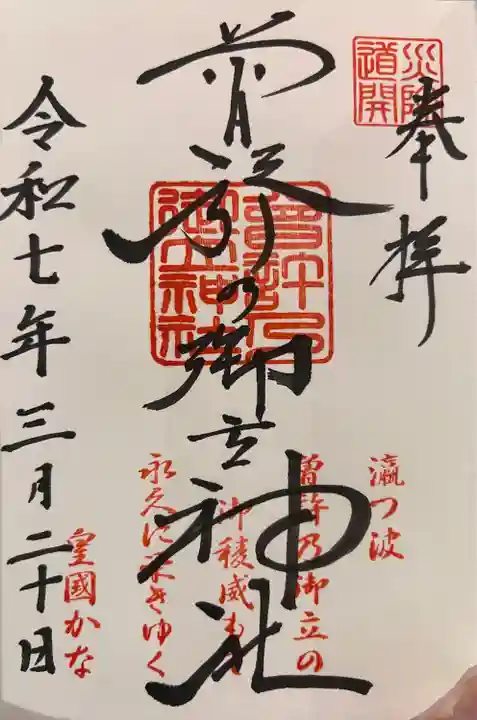 災除
道開
奉拝
曽許の御立神社
曾許乃
御立神社
瀛つ波
曽許乃御立の
御稜威も
永久に
ゆく
皇國かな
令和七年三月二十日